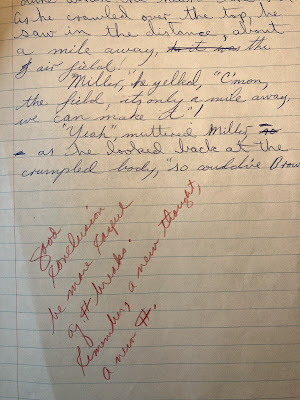 as he crawled over the top, he
saw in the distance, about
a mile away, the
air field!
"Miller," he yelled, "C'mon,
the field, its only a mile away,
we can make it"!
"Yeah" muttered Miller
as he looked back at the
crumpled body, "so could've Brow
Good
Conclusion
be more careful
of # breaks.
Remember, a new thought,
a new #.